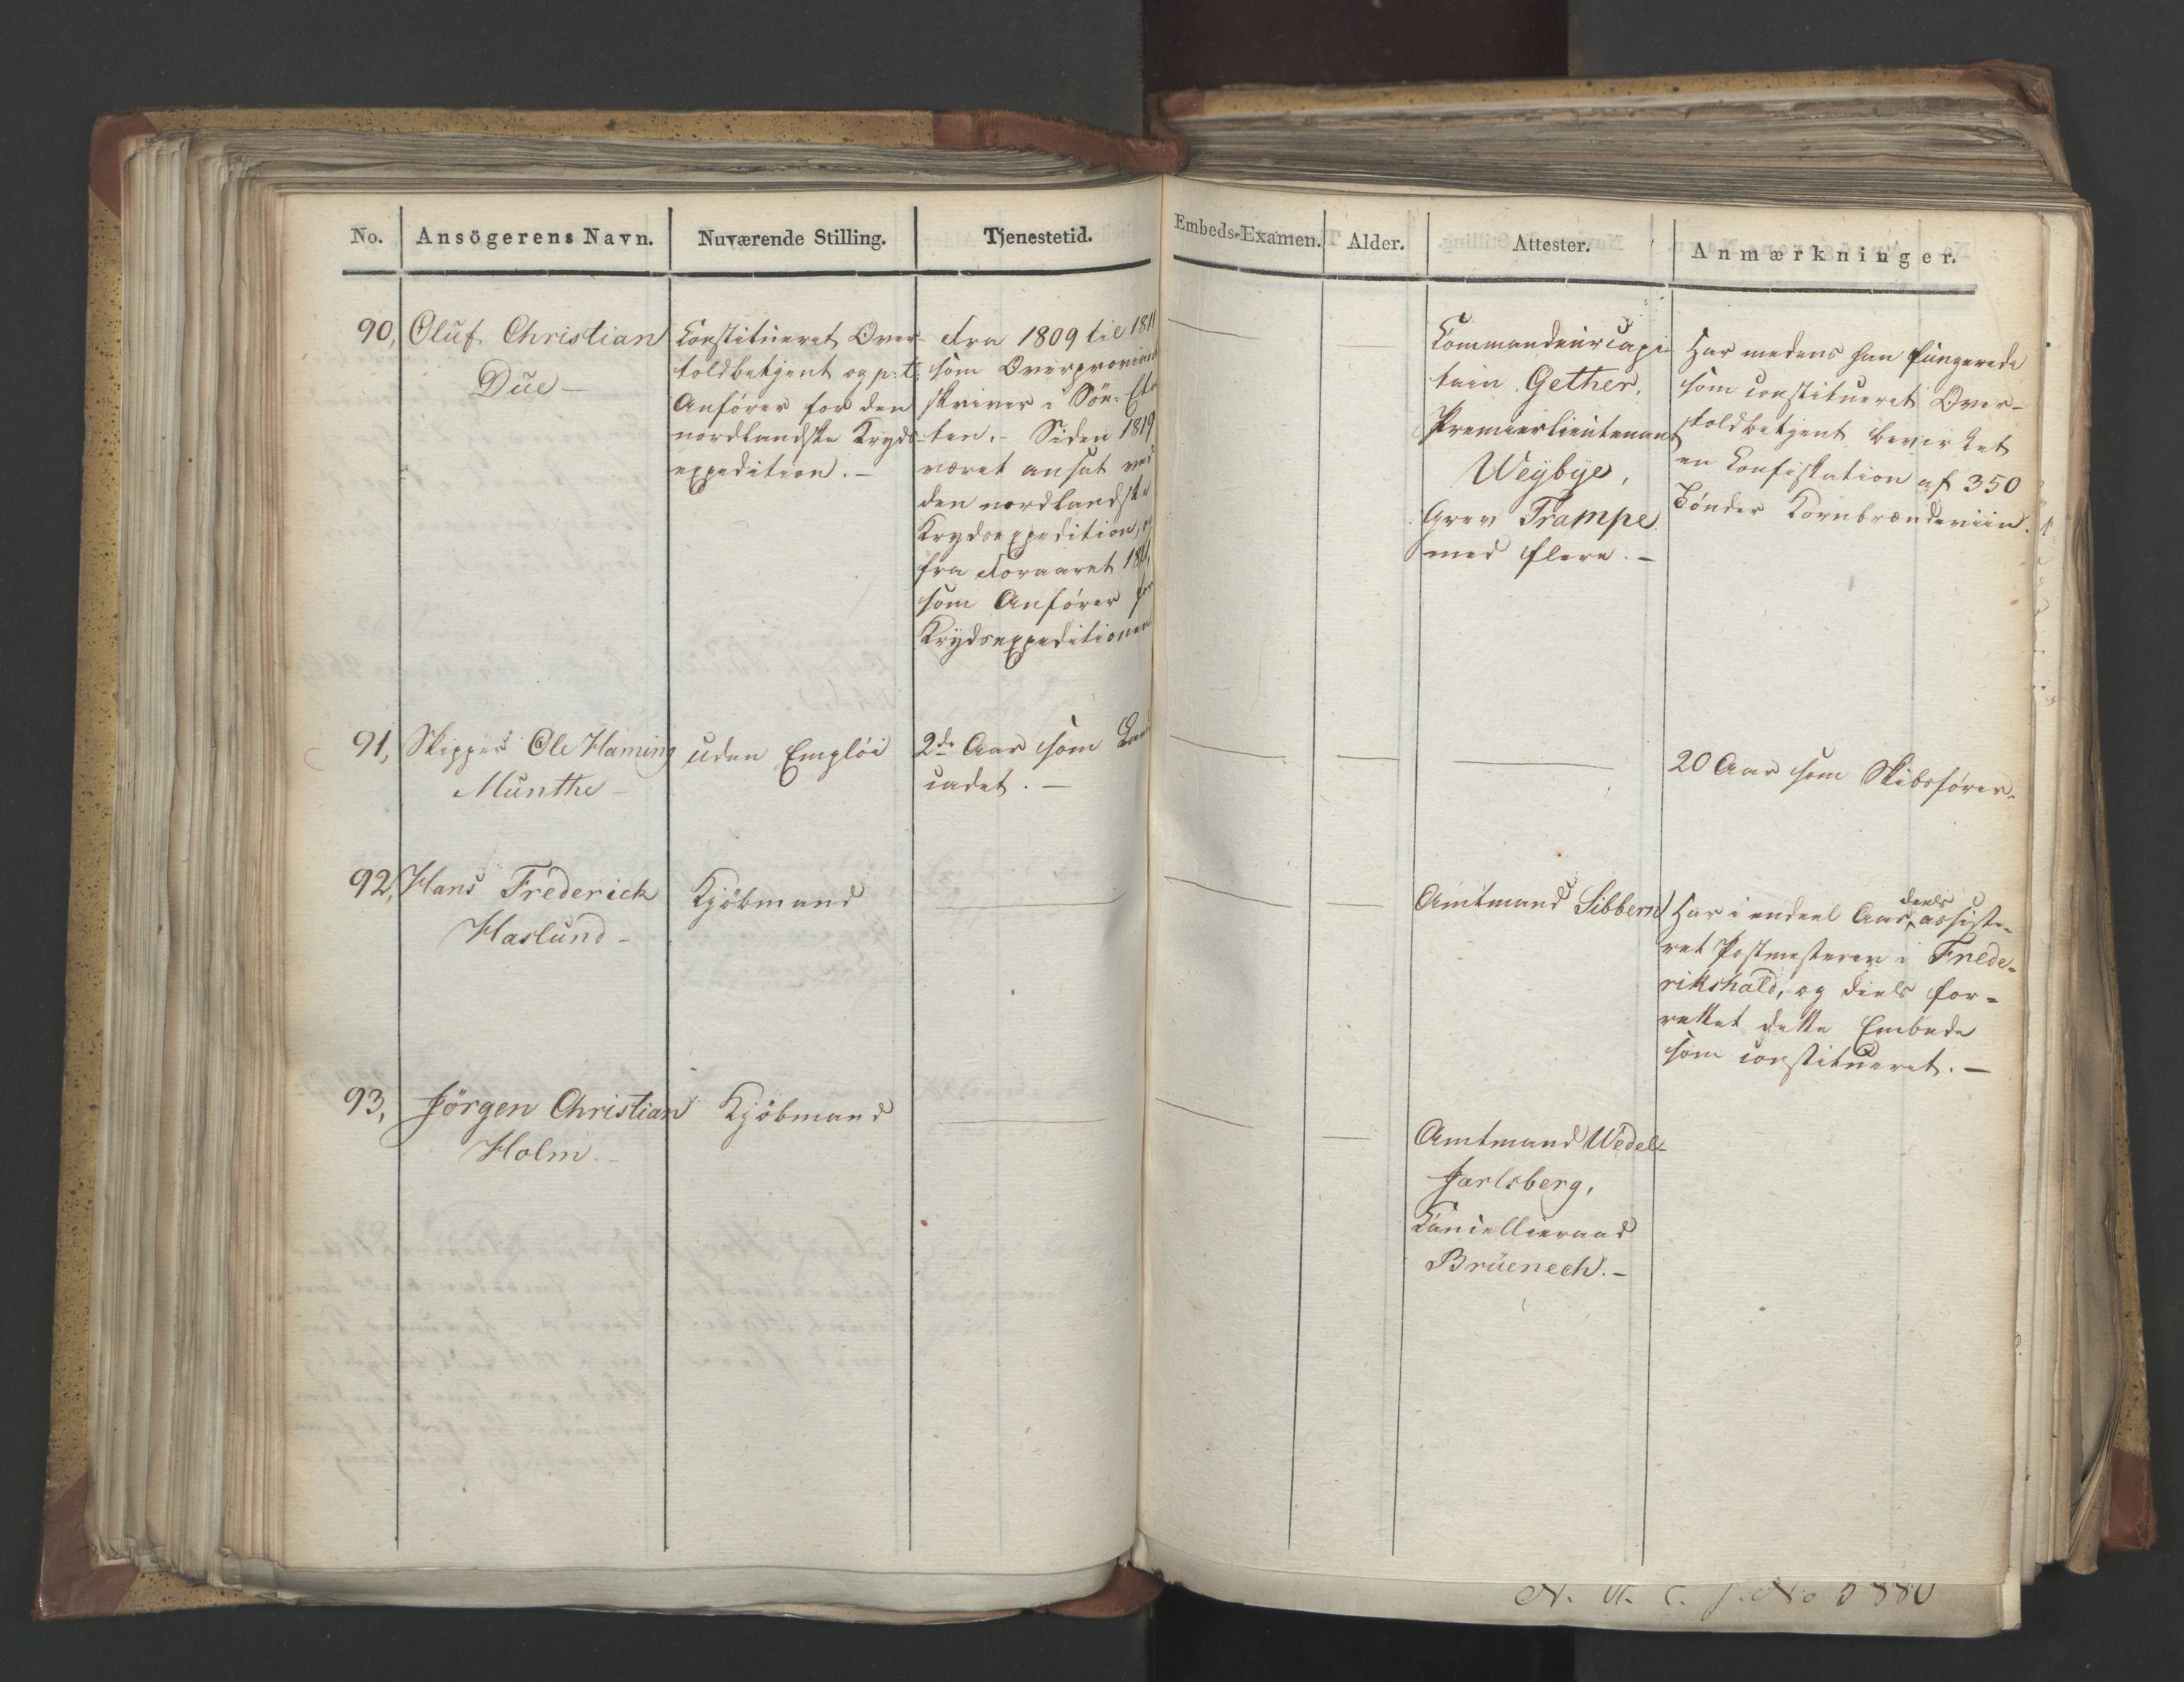 No.
Ansögerens Navn.
Nuværende Stilling.
Tjenestetid.
Embeds-Examen.
Alder.
Attester.
Anmærkninger.
90,
Oluf Christian
Due –
Constitueret Over-
toldbetjent og p: t:
Anfører for den
nordlandske Kryds-
expedition. –
Fra 1809 til 1811
som Overproviant
skriver i Söe-Eta
ten. – Siden 1819
været ansat ved
den nordlandske
Krydsexpedition, og
fra Foraaret
som Anfører for
Krydsexpeditionen
Commandeurcapi-
tain Gether,
Premierlieutenant
Weybye,
Grev Trampe
med flere. –
Har medens han fungerede
som constitueret Over-
toldbetjent bevirket
en Confiskation af 350
Tønder Kornbrændeviin.
91,
Skipper Ole Flaming
Munthe –
uden Empløi
2de Aar som
cadet. –
20 Aar som Skibsfører.
92,
Hans Frederick
Haslund –
Kjöbmand
Amtmand Sibbern
Har i endeel Aar, deels assiste-
ret Postmesteren i Frede-
rikshald, og deels for-
rettet dette Embede
som constitueret. –
93,
Jörgen Christian
Holm. –
Kjöbmand
Amtmand Wedel-
Jarlsberg,
Cancellieraad
Brüenech. –